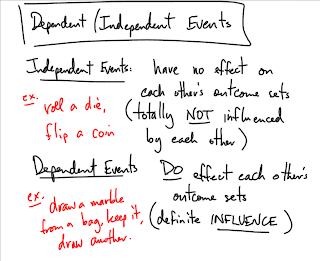 Dependent/Independent Events
Independent Events: have no effect on
each other's outcome sets
(totally NOT influenced
by each other)
ex. roll a die,
flip a coin
Dependent Events DO effect each other's
outcome sets
(definite INFLUENCE)
ex. draw a marble
from a bag, keep it,
draw another.